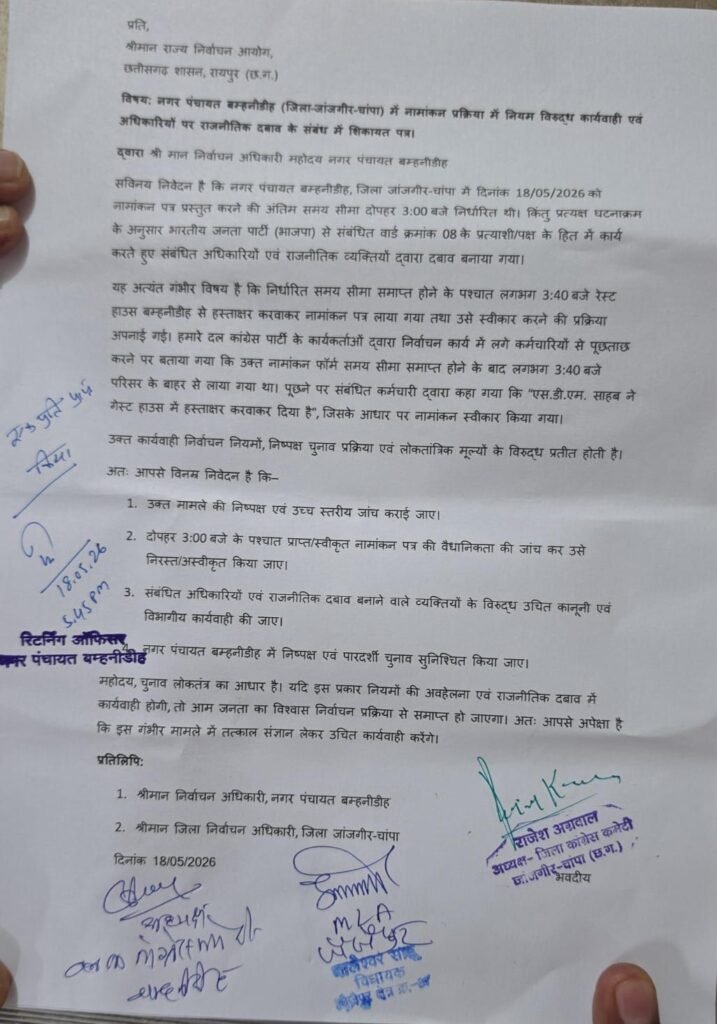 प्रति,
श्रीमान राज्य निर्वाचन आयोग,
छत्तीसगढ़ शासन, रायपुर (छ.ग.)
विषय: नगर पंचायत बम्हनीडीह (जिला-जांजगीर-चांपा) में नामांकन प्रक्रिया में नियम विरुद्ध कार्यवाही एवं
अधिकारियों पर राजनीतिक दबाव के संबंध में शिकायत पत्र।
द्वारा श्री मान निर्वाचन अधिकारी महोदय नगर पंचायत बम्हनीडीह
सविनय निवेदन है कि नगर पंचायत बम्हनीडीह, जिला जांजगीर-चांपा में दिनांक 18/05/2026 को
नामांकन पत्र प्रस्तुत करने की अंतिम समय सीमा दोपहर 3:00 बजे निर्धारित थी। किंतु प्रत्यक्ष घटनाक्रम
के अनुसार भारतीय जनता पार्टी (भाजपा) से संबंधित वार्ड क्रमांक 08 के प्रत्याशी/पक्ष के हित में कार्य
करते हुए संबंधित अधिकारियों एवं राजनीतिक व्यक्तियों द्वारा दबाव बनाया गया।
यह अत्यंत गंभीर विषय है कि निर्धारित समय सीमा समाप्त होने के पश्चात लगभग 3:40 बजे रेस्ट
हाउस बम्हनीडीह से हस्ताक्षर करवाकर नामांकन पत्र लाया गया तथा उसे स्वीकार करने की प्रक्रिया
अपनाई गई। हमारे दल कांग्रेस पार्टी के कार्यकर्ताओं द्वारा निर्वाचन कार्य में लगे कर्मचारियों से पूछताछ
करने पर बताया गया कि उक्त नामांकन फॉर्म समय सीमा समाप्त होने के बाद लगभग 3:40 बजे
परिसर के बाहर से लाया गया था। पूछने पर संबंधित कर्मचारी द्वारा कहा गया कि "एस.डी.एम. साहब ने
गेस्ट हाउस में हस्ताक्षर करवाकर दिया है", जिसके आधार पर नामांकन स्वीकार किया गया।
उक्त कार्यवाही निर्वाचन नियमों, निष्पक्ष चुनाव प्रक्रिया एवं लोकतांत्रिक मूल्यों के विरुद्ध प्रतीत होती है।
अतः आपसे विनम्र निवेदन है कि–
1. उक्त मामले की निष्पक्ष एवं उच्च स्तरीय जांच कराई जाए।
2. दोपहर 3:00 बजे के पश्चात प्राप्त/स्वीकृत नामांकन पत्र की वैधानिकता की जांच कर उसे
निरस्त/अस्वीकृत किया जाए।
3. संबंधित अधिकारियों एवं राजनीतिक दबाव बनाने वाले व्यक्तियों के विरुद्ध उचित कानूनी एवं
विभागीय कार्यवाही की जाए।
नगर पंचायत बम्हनीडीह में निष्पक्ष एवं पारदर्शी चुनाव सुनिश्चित किया जाए।
किया
18.05.26
5.45 PM
रिटर्निंग ऑफिसर
नगर पंचायत बम्हनीडीह
महोदय, चुनाव लोकतंत्र का आधार है। यदि इस प्रकार नियमों की अवहेलना एवं राजनीतिक दबाव में
कार्यवाही होगी, तो आम जनता का विश्वास निर्वाचन प्रक्रिया से समाप्त हो जाएगा। अतः आपसे अपेक्षा है
कि इस गंभीर मामले में तत्काल संज्ञान लेकर उचित कार्यवाही करेंगे।
प्रतिलिपि:
1. श्रीमान निर्वाचन अधिकारी, नगर पंचायत बम्हनीडीह
2. श्रीमान जिला निर्वाचन अधिकारी, जिला जांजगीर-चांपा
दिनांक 18/05/2026
राजेश अग्रवाल
अध्यक्ष- जिला कांग्रेस कमेटी
जांजगीर-चांपा (छ.ग.)
भवदीय
अध्यक्ष
MLA
विधायक